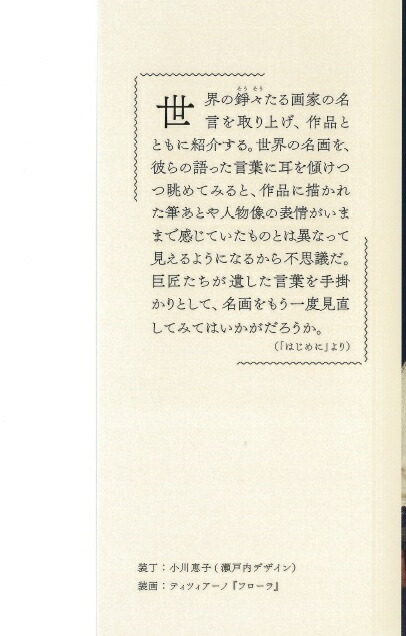 世界の錚々たる画家の名
言を取り上げ、作品と
ともに紹介する。世界の名画を、
彼らの語った言葉に耳を傾けつ
つ眺めてみると、作品に描かれ
た筆あとや人物像の表情がいま
まで感じていたものとは異なって
見えるようになるから不思議だ。
巨匠たちが遺した言葉を手掛
かりとして、名画をもう一度見直
してみてはいかがだろうか。
(「はじめに」より)
装丁：小川恵子(瀬戸内デザイン)
装画：ティツィアーノ『フローラ』